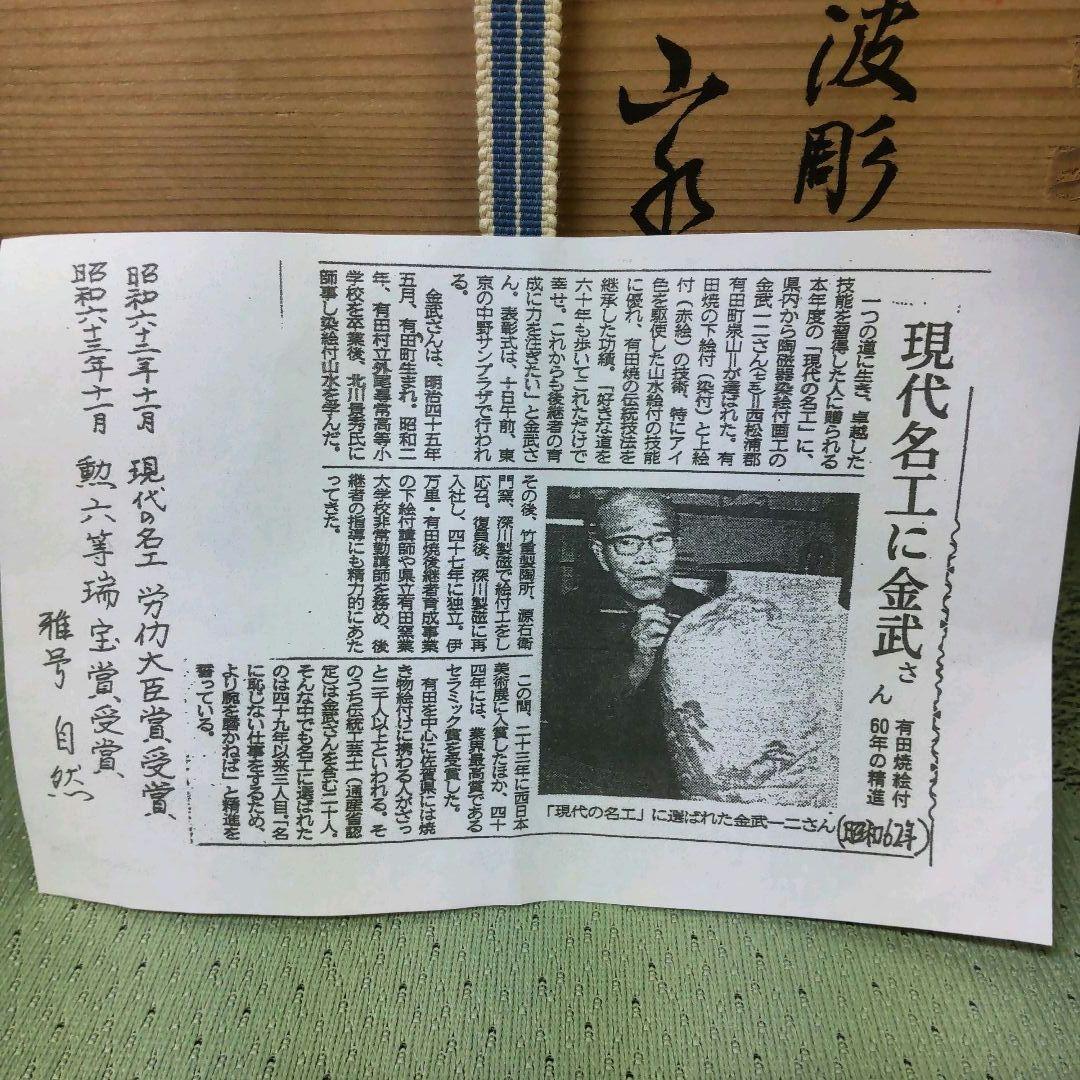 波彫
山水
現代名工に金武さん
有田焼絵付
60年の精進
一つの道に生き、卓越した
技能を習得した人に贈られる
本年度の「現代の名工」に、
県内から陶磁器染絵付画工の
金武一二さん(七五)=西松浦郡
有田町泉山=が選ばれた。有
田焼の下絵付(染付)と上絵
付(赤絵)の技術、特にアイ
色を駆使した山水絵付の技能
に優れ、有田焼の伝統技法を
継承した功績。「好きな道を
六十年も歩いてこれただけで
幸せ。これからも後継者の育
成に力を注ぎたい」と金武さ
ん。表彰式は、十日午前、東
京の中野サンプラザで行われ
る。
金武さんは、明治四十五年
五月、有田町生まれ。昭和二
年、有田村立外尾尋常高等小
学校を卒業後、北川景秀氏に
師事し染絵付山水を学んだ。
その後、竹重製陶所、源右衛
門窯、深川製磁で絵付工をし
応召。復員後、深川製磁に再
入社し、四十七年に独立。伊
万里・有田焼後継者育成事業
の下絵付講師や県立有田窯業
大学校非常勤講師を務め、後
継者の指導にも精力的にあた
ってきた。
この間、二十三年に西日本
美術展に入賞したほか、四十
四年には、業界最高賞である
セラミック賞を受賞した。
有田を中心に佐賀県には焼
き物絵付けに携わる人がざっ
と二千人以上といわれる。そ
のうち伝統工芸士(通産省認
定)は金武さんを含む二十人。
そんな中でも名工に選ばれた
のは四十九年以来三人目。「名
に恥じない仕事をするため、
より腕を磨かねば」と精進を
誓っている。
「現代の名工」に選ばれた金武一二さん
(昭和62年)
昭和六十二年十一月 現代の名工 労働大臣賞受賞
昭和六十三年十一月 勲六等瑞宝賞受賞
雅号 自然